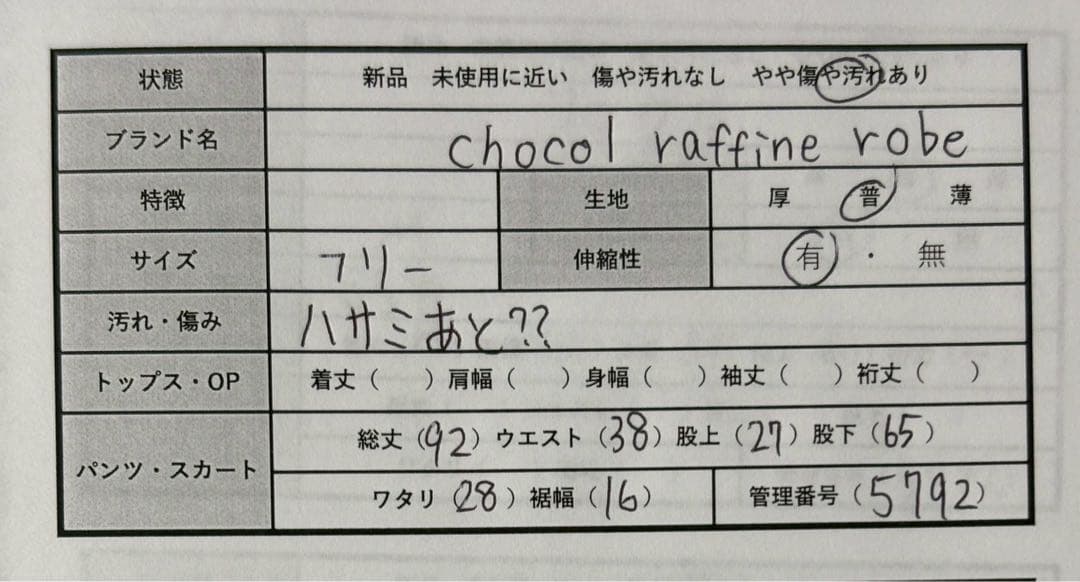 状態 新品 未使用に近い 傷や汚れなし やや傷や汚れあり
ブランド名 chocol raffine robe
特徴 生地 厚 普 薄
サイズ フリー 伸縮性 有・無
汚れ・傷み ハサミあと??
トップス・OP 着丈( )肩幅( )身幅( )袖丈( )裄丈( )
パンツ・スカート 総丈(92)ウエスト(38)股上(27)股下(65)
ワタリ(28)裾幅(16) 管理番号(5792)